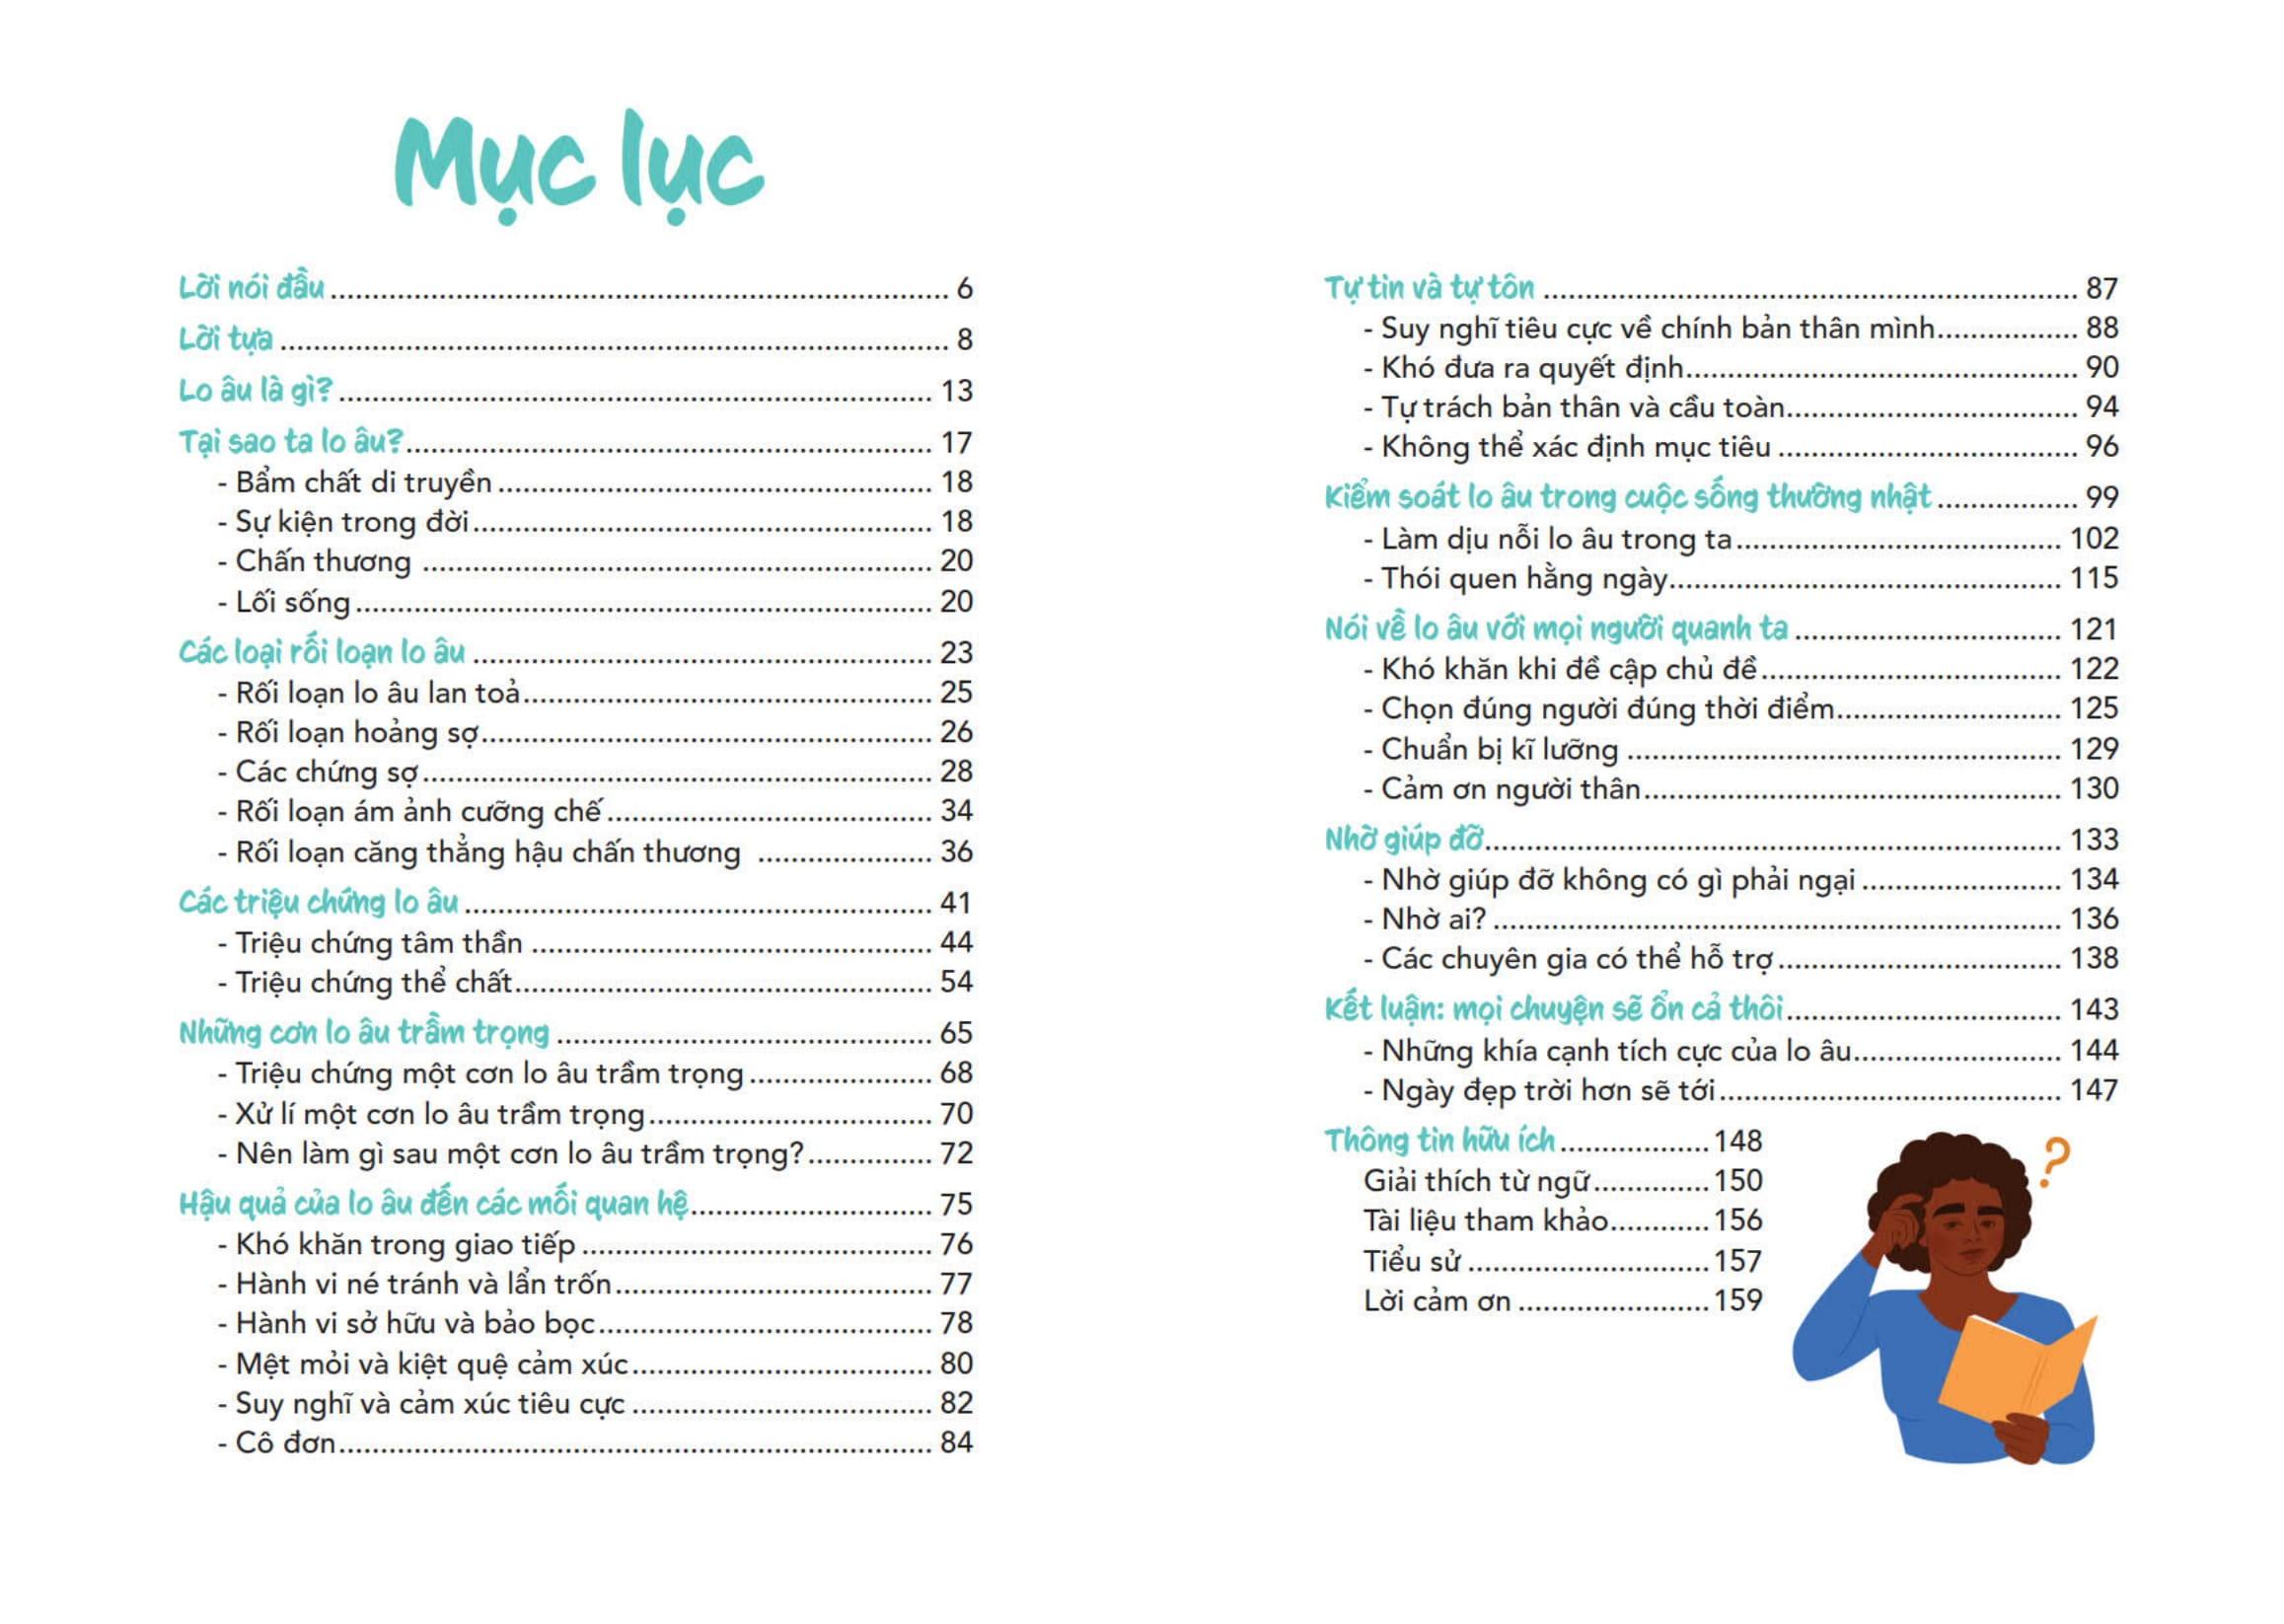 Mục lục
Lời nói đầu ........................................................................... 6
Lời tựa ................................................................................. 8
Lo âu là gì? ........................................................................ 13
Tại sao ta lo âu?................................................................ 17
- Bẩm chất di truyền ..................................................... 18
- Sự kiện trong đời........................................................ 18
- Chấn thương .............................................................. 20
- Lối sống ...................................................................... 20
Các loại rối loạn lo âu ........................................................ 23
- Rối loạn lo âu lan toả.................................................. 25
- Rối loạn hoảng sợ....................................................... 26
- Các chứng sợ.............................................................. 28
- Rối loạn ám ảnh cưỡng chế........................................ 34
- Rối loạn căng thẳng hậu chấn thương ..................... 36
Các triệu chứng lo âu ......................................................... 41
- Triệu chứng tâm thần ................................................. 44
- Triệu chứng thể chất................................................... 54
Những cơn lo âu trầm trọng .............................................. 65
- Triệu chứng một cơn lo âu trầm trọng ...................... 68
- Xử lí một cơn lo âu trầm trọng................................... 70
- Nên làm gì sau một cơn lo âu trầm trọng?............... 72
Hậu quả của lo âu đến các mối quan hệ............................. 75
- Khó khăn trong giao tiếp ........................................... 76
- Hành vi né tránh và lẩn trốn....................................... 77
- Hành vi sở hữu và bảo bọc......................................... 78
- Mệt mỏi và kiệt quệ cảm xúc..................................... 80
- Suy nghĩ và cảm xúc tiêu cực ..................................... 82
- Cô đơn........................................................................ 84
Tự tin và tự tôn ................................................................. 87
- Suy nghĩ tiêu cực về chính bản thân mình................. 88
- Khó đưa ra quyết định................................................ 90
- Tự trách bản thân và cầu toàn................................... 94
- Không thể xác định mục tiêu .................................... 96
Kiểm soát lo âu trong cuộc sống thường nhật ................. 99
- Làm dịu nỗi lo âu trong ta ....................................... 102
- Thói quen hằng ngày............................................... 115
Nói về lo âu với mọi người quanh ta ................................ 121
- Khó khăn khi đề cập chủ đề .................................... 122
- Chọn đúng người đúng thời điểm........................... 125
- Chuẩn bị kĩ lưỡng .................................................... 129
- Cảm ơn người thân.................................................. 130
Nhờ giúp đỡ..................................................................... 133
- Nhờ giúp đỡ không có gì phải ngại ........................ 134
- Nhờ ai? .................................................................... 136
- Các chuyên gia có thể hỗ trợ .................................. 138
Kết luận: mọi chuyện sẽ ổn cả thôi................................. 143
- Những khía cạnh tích cực của lo âu......................... 144
- Ngày đẹp trời hơn sẽ tới ......................................... 147
Thông tin hữu ích .................. 148
Giải thích từ ngữ .............. 150
Tài liệu tham khảo............ 156
Tiểu sử ............................. 157
Lời cảm ơn ....................... 159
?